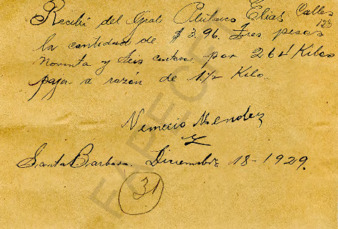 Recibí del Gral Plutarco Elías Calles
123
la cantidad de $3.96. Tres pesos
noventa y seis centavos por 264 Kilos
paja a razón de 1½ Kilo.
Nemecio Mendez
Santa Barbara. Diciembre 18-1929.
31